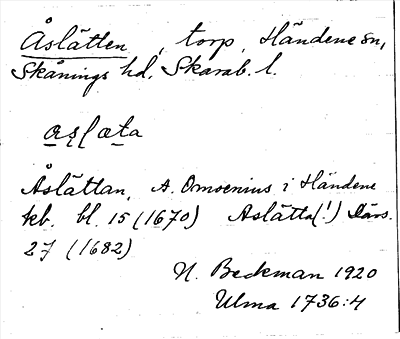 Åslätten, torp, Händene sn,
Skånings hd, Skarab. l.
Åslättan, A. Omoenius i Händene
kb. bl. 15 (1670) Aslätta(!) Därs.
27 (1682)
N. Beckman 1920
Ulma 1736:4